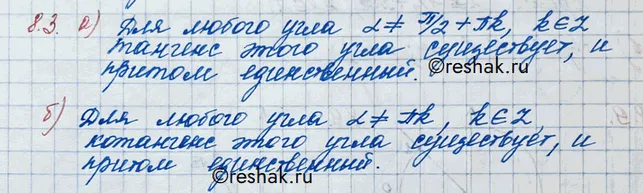 8.3. а) Для любого угла α ≠ π/2 + πk, k ∈ Z
тангенс этого угла существует, и
притом единственный.
©reshak.ru
б) Для любого угла α ≠ πk, k ∈ Z
котангенс этого угла существует, и
притом единственный.
©reshak.ru